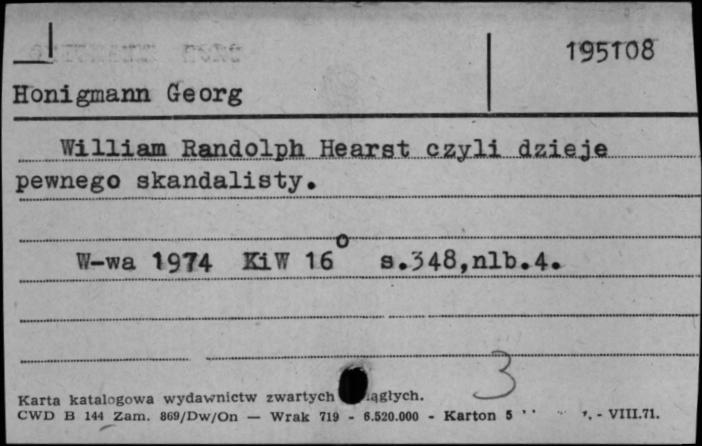 195108
Honigmann Georg
William Randolph Hearst czyli dzieje
pewnego skandalisty.
W-wa 1974 KiW 16° s.348,nlb.4.
3
Karta katalogowa wydawnictw zwartych
CWD B 144 Zam. 869/Dw/On — Wrak 719 - 6.520.000 - Karton 5 - VIII.71.